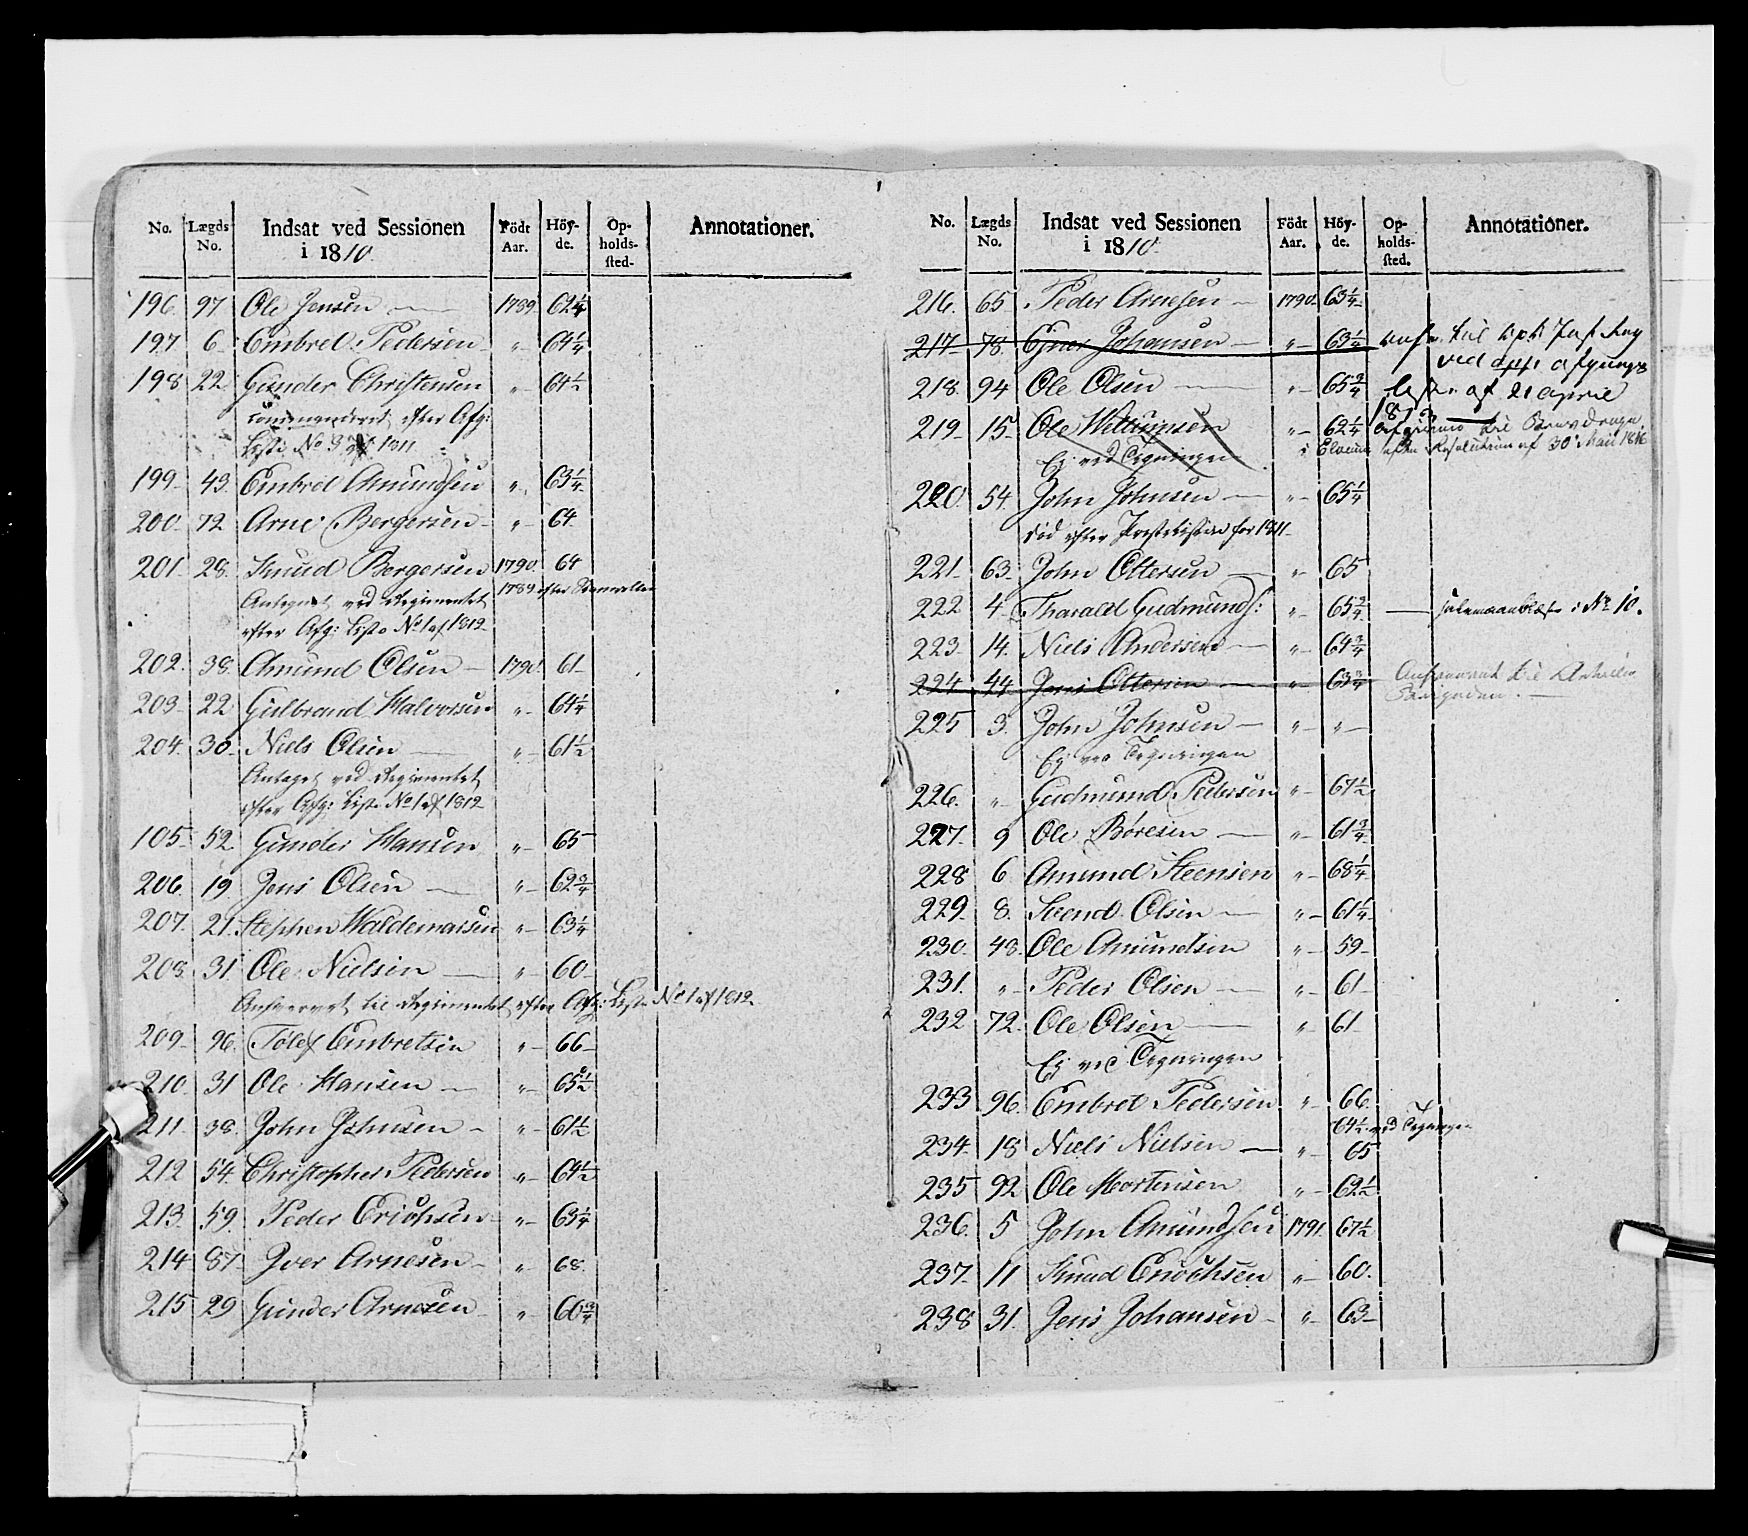 No. Lægds No. Indsat ved Sessionen i 1810. Födt Aar. Höy-de. Op-holds-sted. Annotationer.
196. 97 Ole Jensen — 1789. 62¼
197 6. Embret Pedersen „ 64¼
198 22 Gunder Christensen „ 64½
commanderet efter Afg:
Liste No 3 af 1811
199. 43. Embret Amundsen „ 63¼
200. 72 Arne Bergersen „ 64
201. 28. Knud Bergersen 1790. 64
1789 efter
Antaget ved Regimentet
efter Afg: Liste No 1 af 1812
202. 38. Amund Olsen — 1790. 61
203. 22 Gulbrand Halvorsen „ 64¼
204. 30. Niels Olsen — „ 61½
Antaget ved Regimentet
efter Afg: Liste No 1 af 1812
105. 52 Gunder Hansen „ 65
206. 19 Jens Olsen — „ 62¾
207. 21. Stephen Waldemarsen „ 63¼
208. 31. Ole Nielsen — „ 60
Ansvarvet til Regimentet efter Afg: Liste No 1 af 1812
209. 96. Tolef Embretsen „ 66
210. 31 Ole Hansen — „ 65½
211. 38. John Johnsen „ 61½
212 54. Christopher Pedersen „ 64½
213. 59. Peder Erichsen „ 63¼
214 87 Iver Arnesen „ 68.
215 29 Gunder Arnesen „ 60¾
No. Lægds No. Indsat ved Sessionen i 1810. Födt Aar. Höy-de. Op-holds-sted. Annotationer.
216. 65 Peder Arnesen — 1790. 63¼
217 78. Ejner Johansen — „ 63¼ til
ved afgangs
218. 94 Ole Olsen — „ 65¾ liste af 21 april
181
219. 15. Ole Willumsen „ 62¼ til
Ej ved Tegningen i Elverum efter Resolution af 30 1816
220. 54. John Johnsen — „ 65¼
død efter Præstelisterne for 1811.
221. 63. John Ottersen — „ 65
222 4. Tharald Gudmunds: „ 65¾ — i No 10.
223. 14. Niels Andersen — „ 64¾
224 44 Jens Ottersen — „ 63¾ til
225 3. John Johnsen — „ „
Ej ved Tegningen
226. „ Gudmund Pedersen „ 67½
227. 9 Ole Børesen — „ 61¾
228 6. Amund Steensen „ 68¼
229. 8. Svend Olsen — „ 61¼
230. 48. Ole Amundsen „ 59
231. „ Peder Olsen — „ 61
232 72. Ole Olsen — „ 61
Ej ved Tegningen
233 96. Embret Pedersen „ 66.
64½ ved Tegningen
234. 18 Niels Nielsen — „ 65
235 92 Ole Mortensen „ 62½
236. 5 John Amundsen 1791. 67½
237. 11 Knud Enochsen „ 60.
238 31. Jens Johansen „ 63